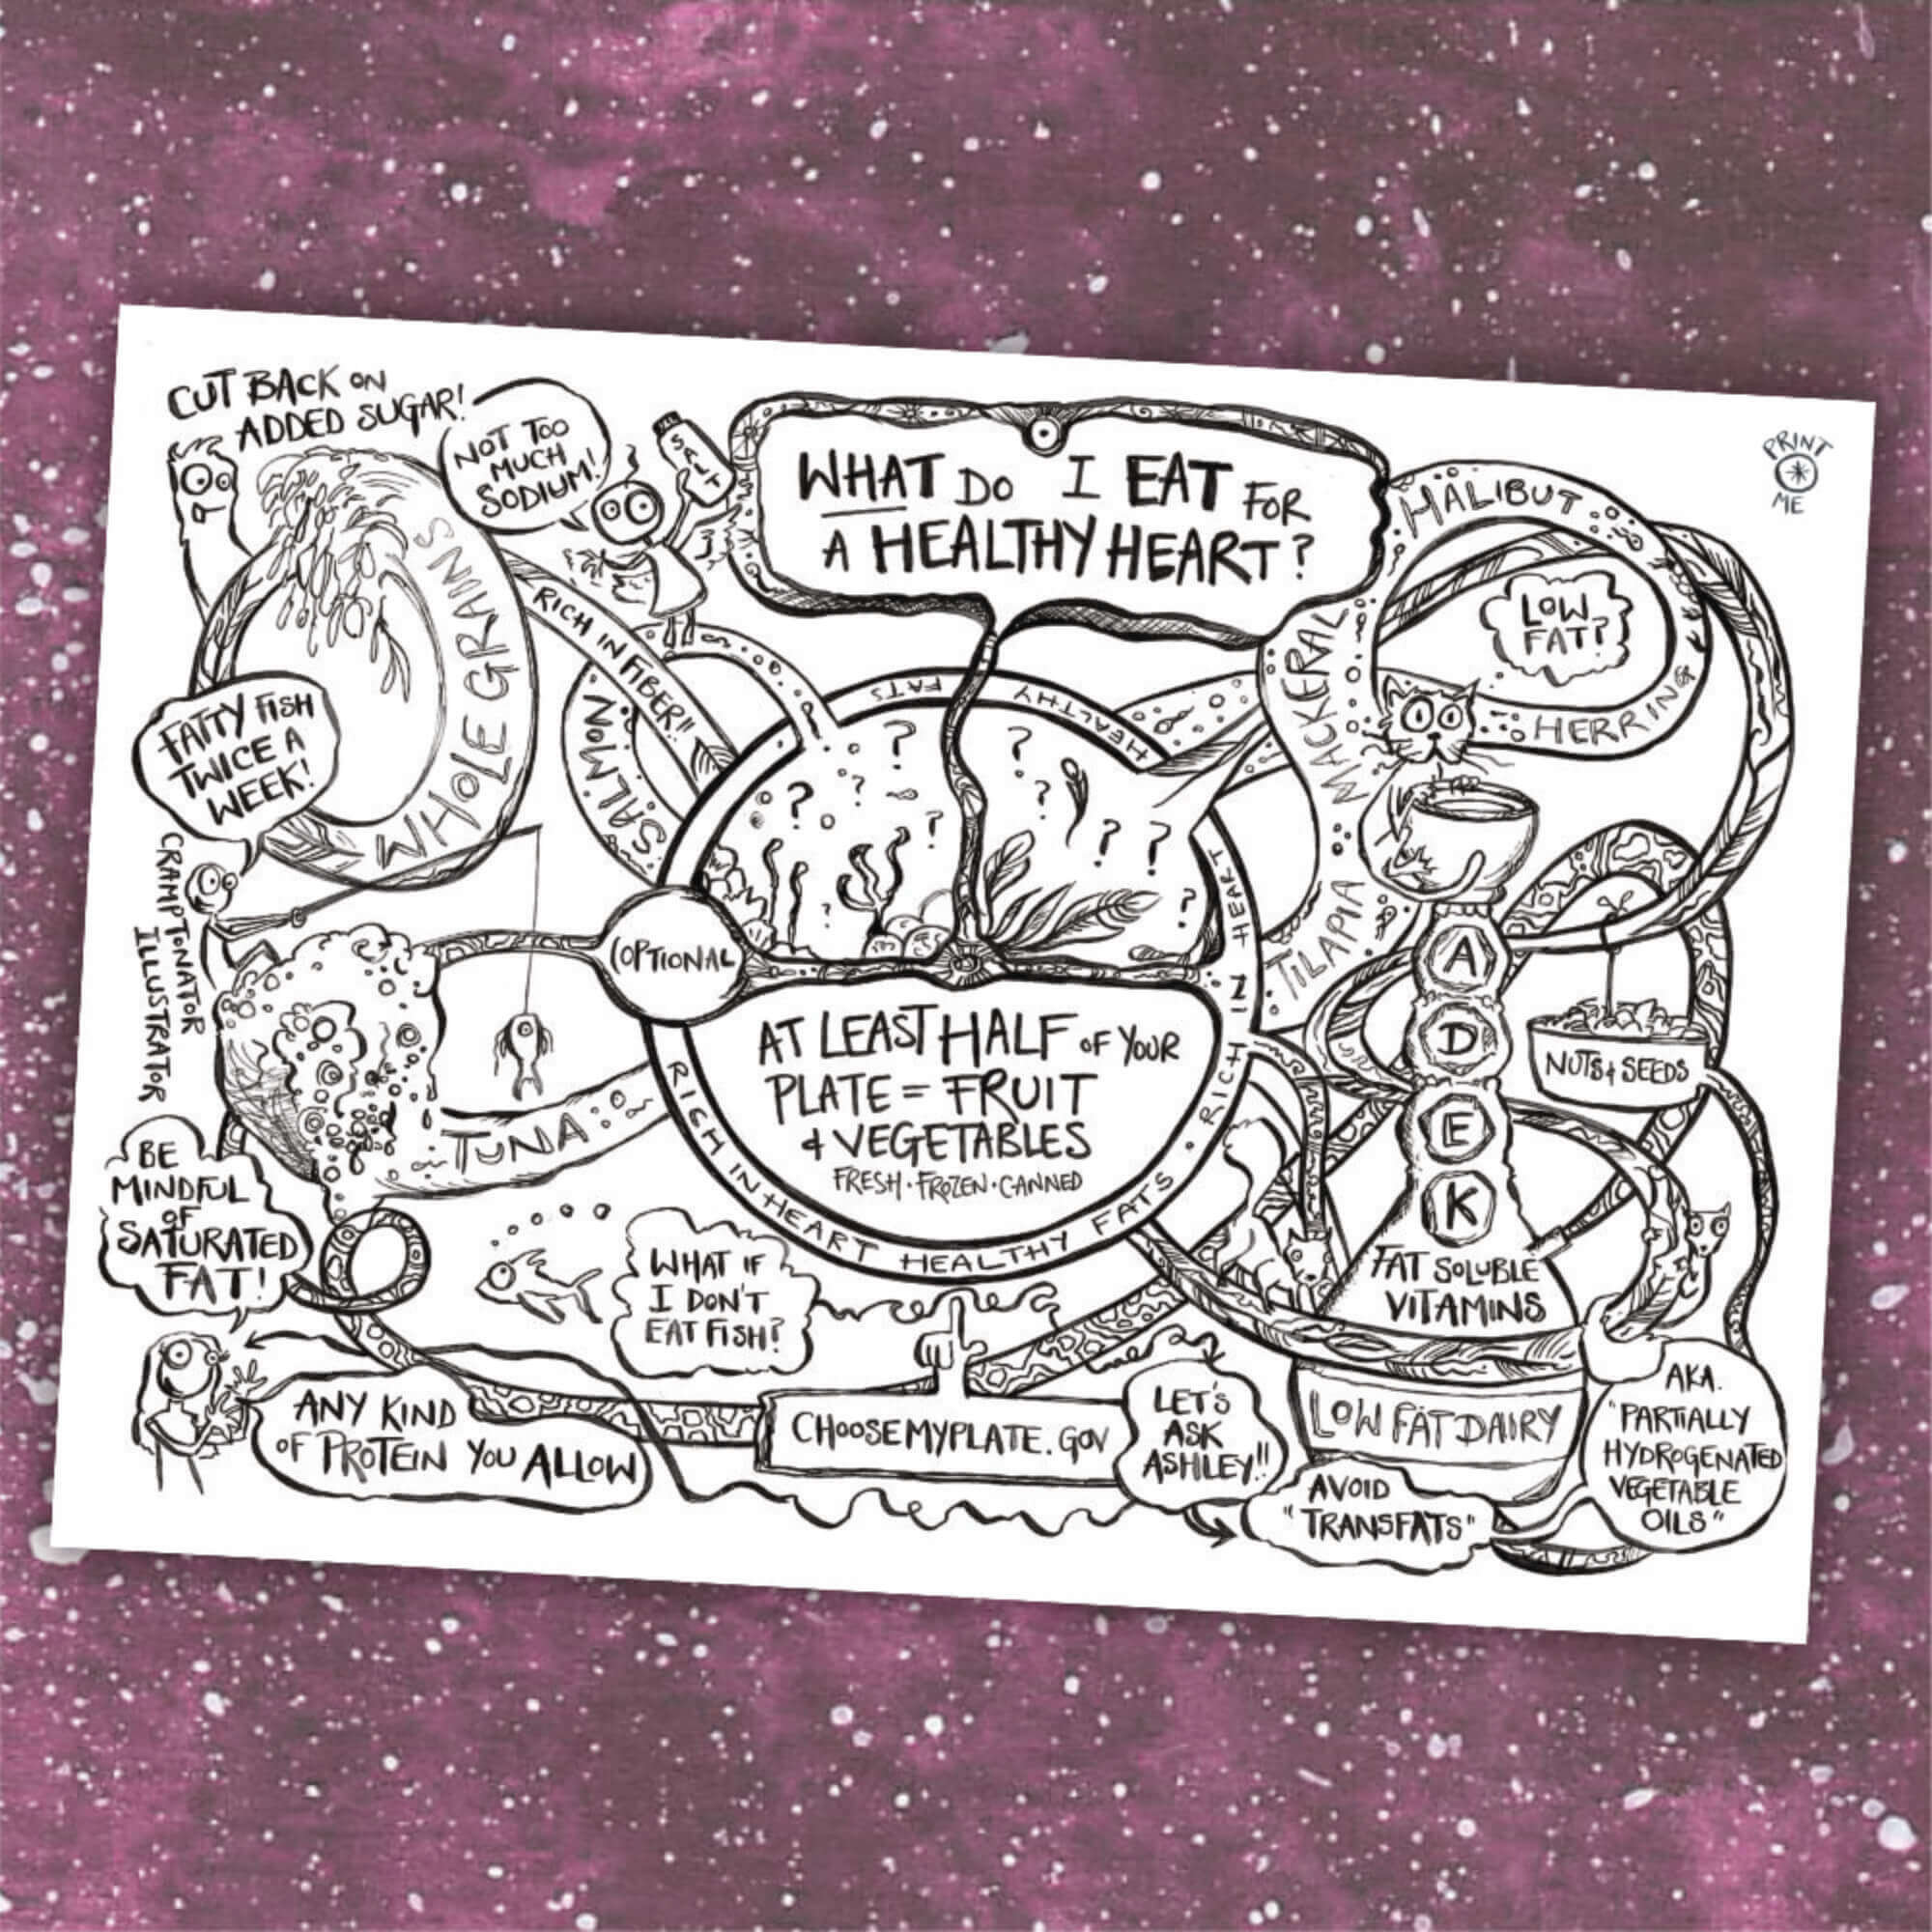 CUT BACK ON
ADDED SUGAR!
NOT TOO
MUCH
SODIUM!
SALT
WHAT DO I EAT FOR
A HEALTHY HEART?
PRINT
ME
HALIBUT
LOW
FAT?
MACKERAL
HERRING
TILAPIA
WHOLE GRAINS
RICH IN FIBER!!
SALMON
FATTY FISH
TWICE A
WEEK!
CRAMPTONATOR
ILLUSTRATOR
(OPTIONAL
? ? ? ? ? ?
? ? ? ? ?
AT LEAST HALF OF YOUR
PLATE = FRUIT
& VEGETABLES
FRESH · FROZEN · CANNED
RICH IN HEART HEALTHY FATS · RICH IN HEART HEALTHY FATS
TUNA
A
D
E
K
FAT SOLUBLE
VITAMINS
NUTS & SEEDS
BE
MINDFUL
OF
SATURATED
FAT!
WHAT IF
I DON'T
EAT FISH?
ANY KIND
OF PROTEIN YOU ALLOW
CHOOSEMYPLATE.GOV
LET'S
ASK
ASHLEY!!
LOW FAT DAIRY
AVOID
"TRANSFATS"
AKA.
"PARTIALLY
HYDROGENATED
VEGETABLE
OILS"